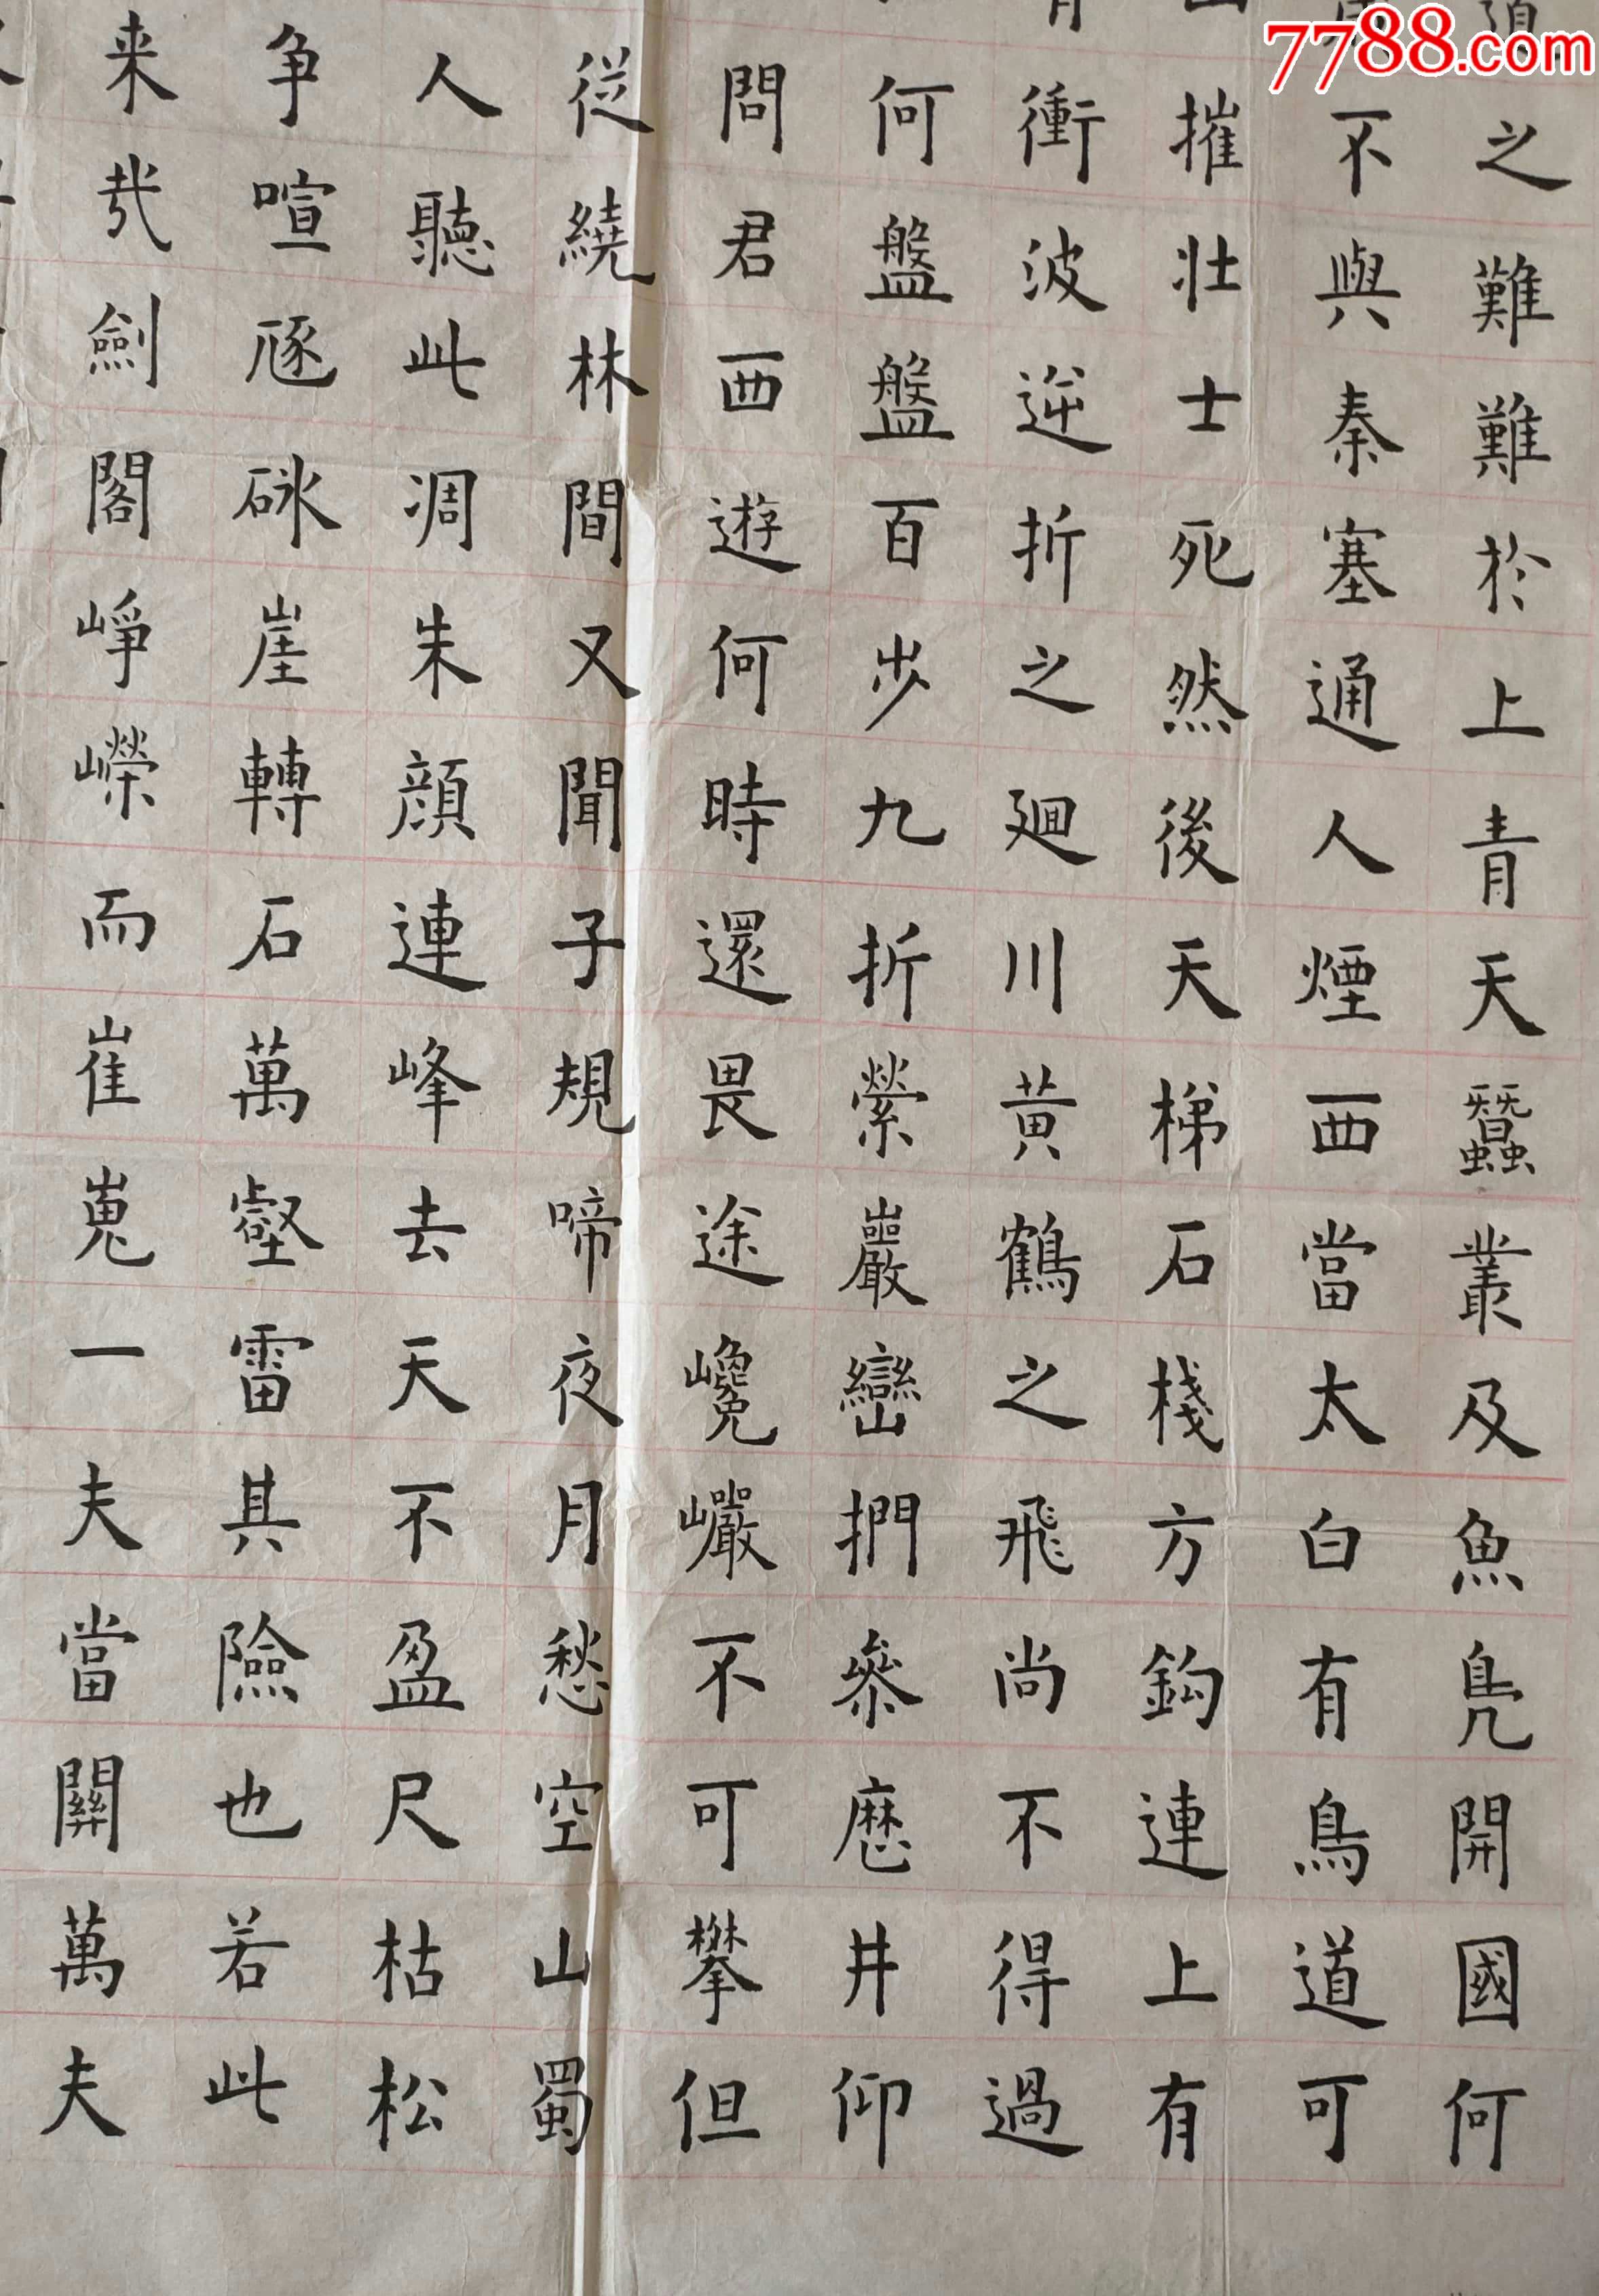 7788.com
之難難於上青天蠶叢及魚鳧開國何
不與秦塞通人煙西當太白有鳥道可
摧壯士死然後天梯石棧方鈎連上有
衝波逆折之廻川黃鶴之飛尚不得過
何盤盤百步九折縈巖巒捫參歷井仰
問君西遊何時還畏途巉巗不可攀但
從繞林間又聞子規啼夜月愁空山蜀
人聽此凋朱顔連峰去天不盈尺枯松
争喧豗砯崖轉石萬壑雷其險也若此
来哉劍閣崢嶸而崔嵬一夫當關萬夫